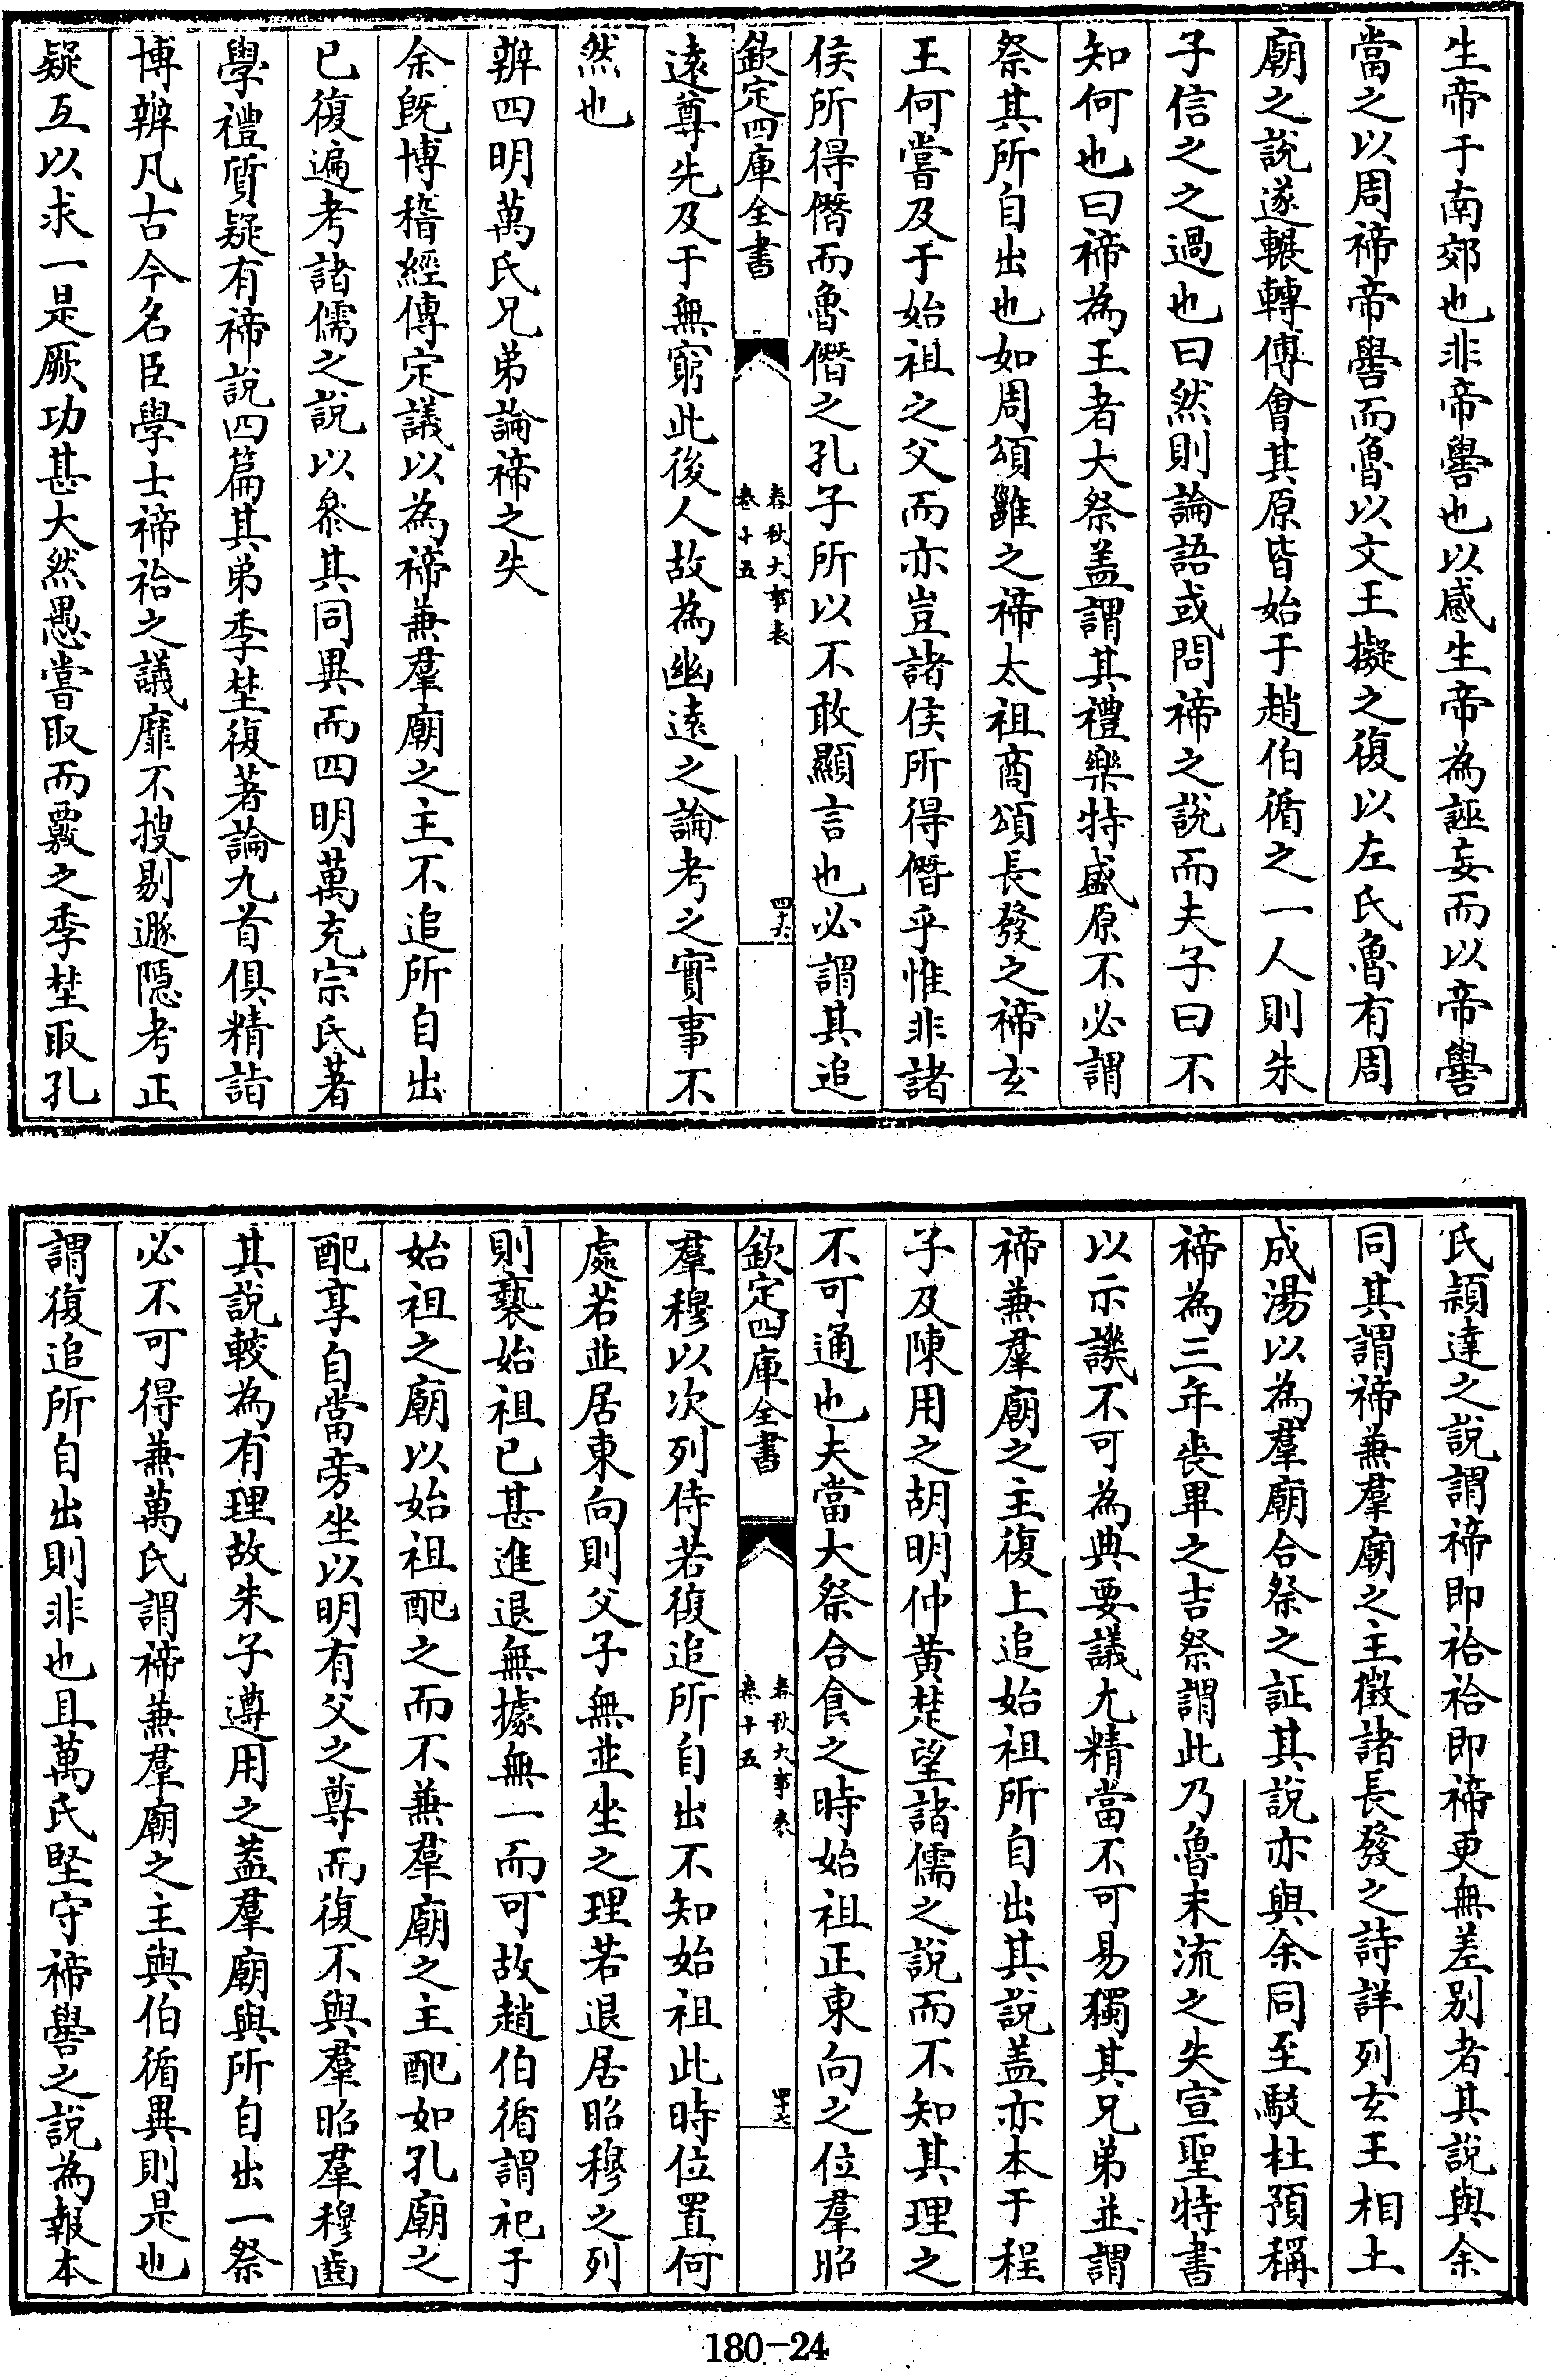 生帝于南郊也非帝嚳也以感生帝為誣妄而以帝嚳
當之以周禘帝嚳而魯以文王擬之復以左氏魯有周
廟之說遂輾轉傅會其原皆始于趙伯循之一人則朱
子信之之過也曰然則論語或問禘之說而夫子曰不
知何也曰禘為王者大祭盖謂其禮樂特盛原不必謂
祭其所自出也如周頌雝之禘太祖商頌長發之禘玄
王何嘗及于始祖之父而亦豈諸侯所得僭乎惟非諸
侯所得僭而魯僭之孔子所以不敢顯言也必謂其追
欽定四庫全書
春秋大事表
卷十五
四十六
遠尊先及于無窮此後人故為幽遠之論考之實事不
然也
辨四明萬氏兄弟論禘之失
余既博稽經傳定議以為禘兼羣廟之主不追所自出
已復遍考諸儒之說以參其同異而四明萬充宗氏著
學禮質疑有禘說四篇其弟季埜復著論九首俱精詣
博辨凡古今名臣學士禘祫之議靡不搜剔遯隱考正
疑互以求一是厥功甚大然愚嘗取而覈之季埜取孔
氏穎達之說謂禘即祫祫即禘更無差別者其說與余
同其謂禘兼羣廟之主徵諸長發之詩詳列玄王相土
成湯以為羣廟合祭之証其說亦與余同至駁杜預稱
禘為三年喪畢之吉祭謂此乃魯末流之失宣聖特書
以示譏不可為典要議尤精當不可易獨其兄弟並謂
禘兼羣廟之主復上追始祖所自出其說盖亦本于程
子及陳用之胡明仲黃楚望諸儒之說而不知其理之
不可通也夫當大祭合食之時始祖正東向之位羣昭
欽定四庫全書
春秋大事表
卷十五
四十七
羣穆以次列侍若復追所自出不知始祖此時位置何
處若並居東向則父子無並坐之理若退居昭穆之列
則褻始祖已甚進退無據無一而可故趙伯循謂祀于
始祖之廟以始祖配之而不兼羣廟之主配如孔廟之
配享自當旁坐以明有父之尊而復不與羣昭羣穆齒
其說較為有理故朱子遵用之葢羣廟與所自出一祭
必不可得兼萬氏謂禘兼羣廟之主與伯循異則是也
謂復追所自出則非也且萬氏堅守禘嚳之說為報本
180-24